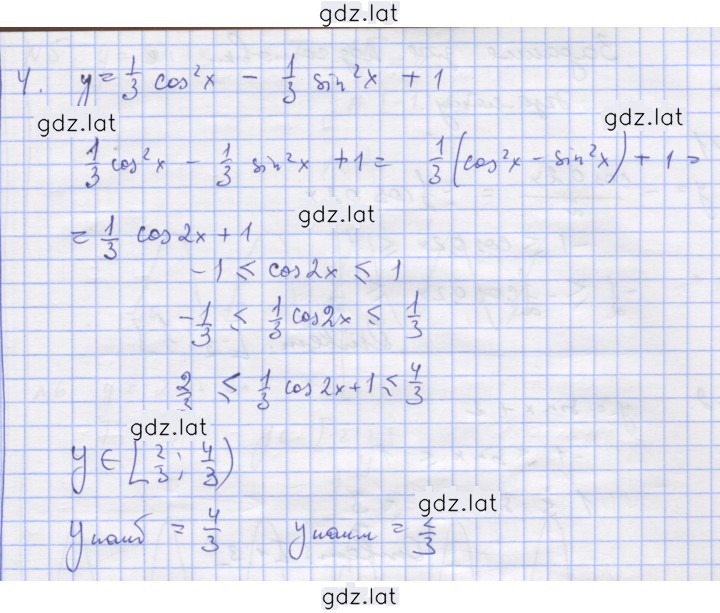 gdz.lat
4. y = 1/3 cos²x - 1/3 sin²x + 1
gdz.lat gdz.lat
1/3 cos²x - 1/3 sin²x + 1 = 1/3 (cos²x - sin²x) + 1 =
gdz.lat
= 1/3 cos2x + 1
-1 ≤ cos2x ≤ 1
-1/3 ≤ 1/3 cos2x ≤ 1/3
2/3 ≤ 1/3 cos2x+1 ≤ 4/3
gdz.lat
y ∈ [2/3; 4/3)
gdz.lat
yнаиб = 4/3 yнаим = 2/3
gdz.lat